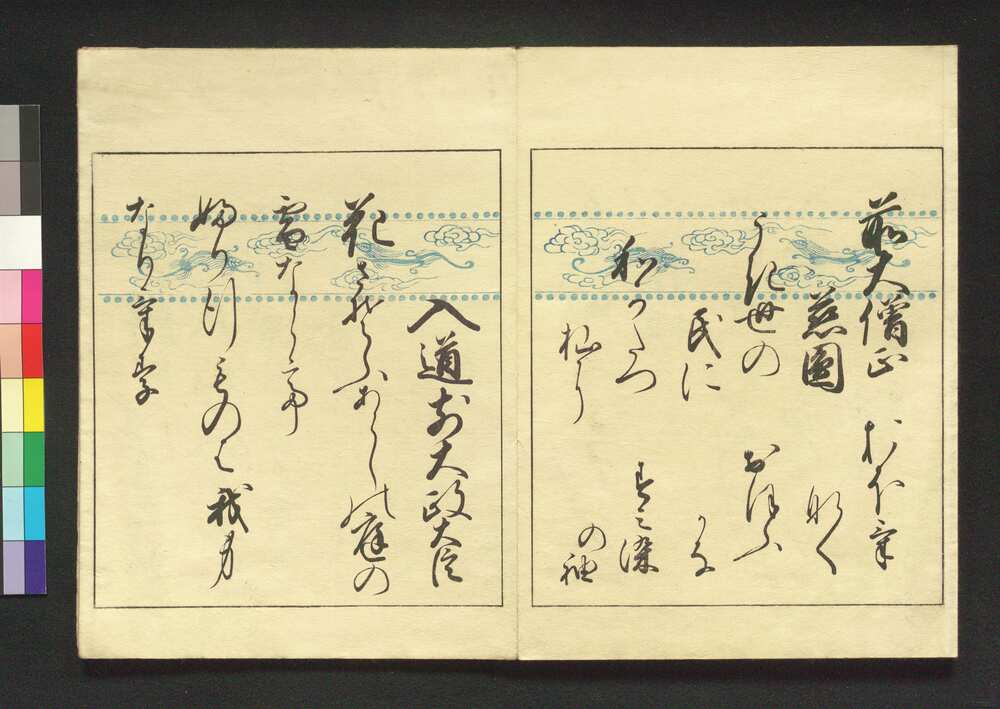 前大僧正
慈圓
おほけ
なく
うき世の
民に
おほふ
かな
和かたつ
杣に
すみ染
の袖
入道前大政大臣
花さそふあらしの庭の
雪ならて
ふり行ものは我身
なりけり